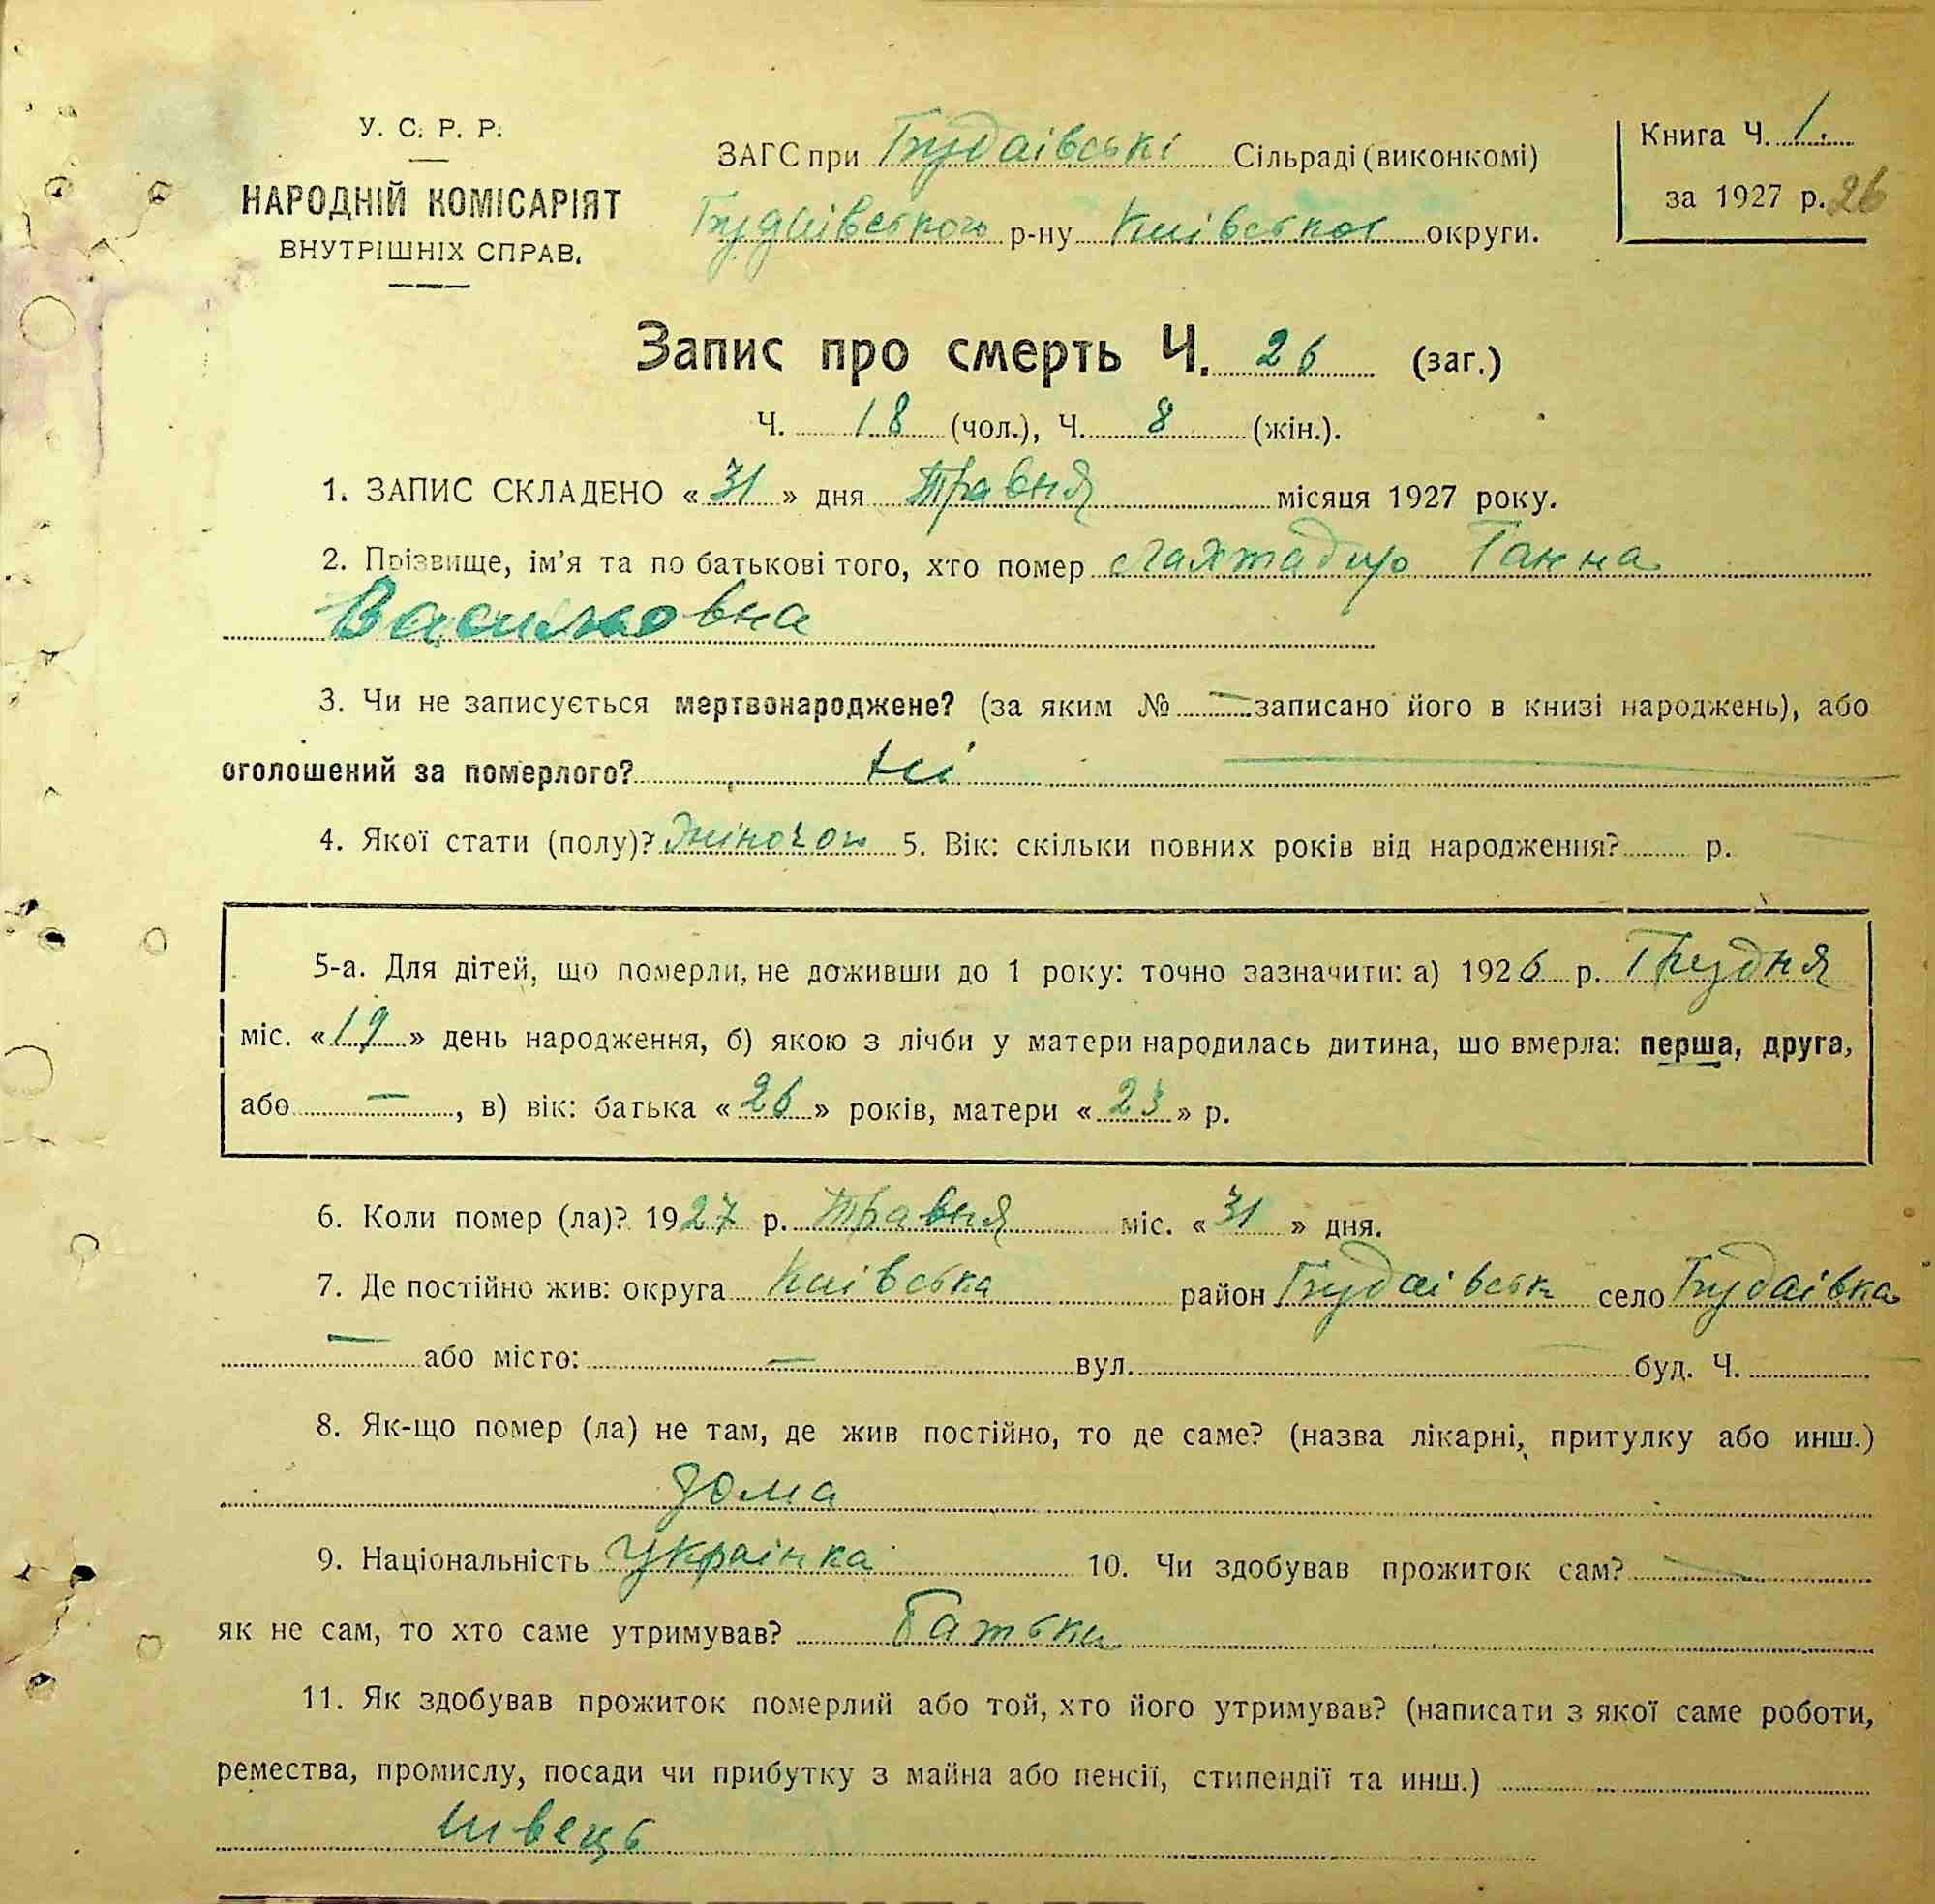 У. С. Р. Р.
НАРОДНІЙ КОМІСАРІЯТ
ВНУТРІШНІХ СПРАВ.
ЗАГС при Будаівські Сільраді (виконкомі)
Будаівського р-ну Киівськоі округи.
Книга Ч. 1.
за 1927 р. 26
Запис про смерть Ч. 26 (заг.)
Ч. 18 (чол.), Ч. 8 (жін.).
1. ЗАПИС СКЛАДЕНО « 31 » дня Травня місяця 1927 року.
2. Прізвище, ім’я та по батькові того, хто помер Лахтадир Ганна
Васильовна
3. Чи не записується мертвонароджене? (за яким № — записано його в книзі народжень), або
оголошений за померлого? ні
4. Якої стати (полу)? Жіночои 5. Вік: скільки повних років від народження? р.
5-а. Для дітей, що померли, не доживши до 1 року: точно зазначити: а) 1926 р. Грудня
міс. « 19 » день народження, б) якою з лічби у матери народилась дитина, шо вмерла: перша, друга,
або — , в) вік: батька « 26 » років, матери « 23 » р.
6. Коли помер (ла)? 1927 р. Травня міс. « 31 » дня.
7. Де постійно жив: округа Киівська район Будаівськ село Будаівка
— або місто: — вул. буд. Ч.
8. Як-що помер (ла) не там, де жив постійно, то де саме? (назва лікарні, притулку або инш.)
дома
9. Національність Украінка 10. Чи здобував прожиток сам? —
як не сам, то хто саме утримував? Батьки
11. Як здобував прожиток померлий або той, хто його утримував? (написати з якої саме роботи,
ремества, промислу, посади чи прибутку з майна або пенсії, стипендії та инш.)
швець